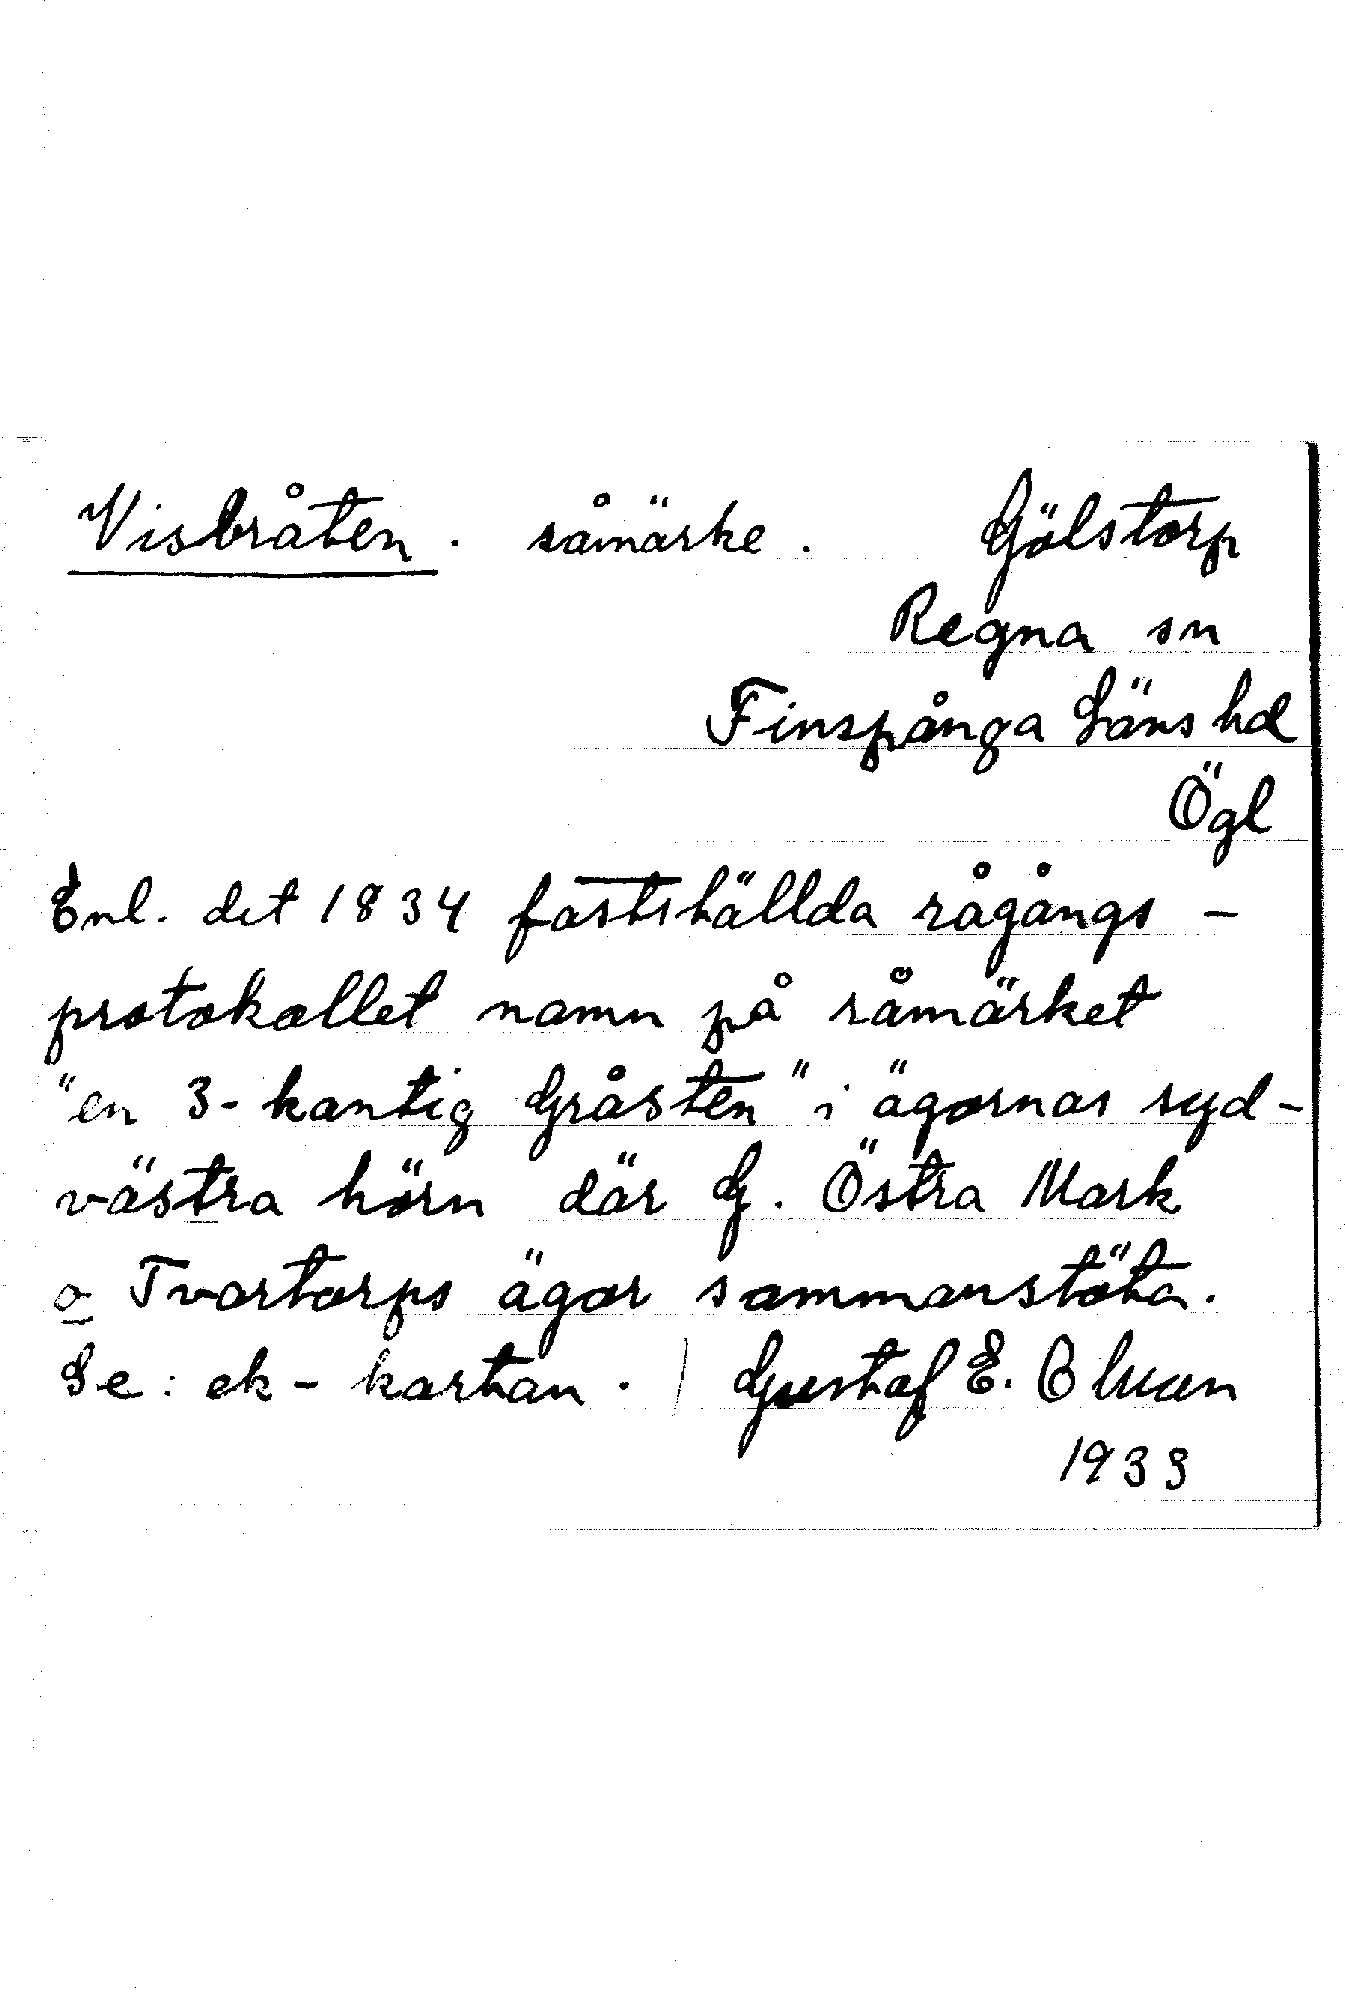 Visbråten. råmärke. Gölstorp
Regna sn
Finspånga Läns hd
Ögl
Enl. det 1834 fastställda rågångs-
protokollet namn på råmärket
"en 3-kantig Gråsten" i ägornas syd-
västra hörn där G. Östra Mark
o Tvartorps ägor sammanstöta.
Se: ek-kartan. Gustaf E.
1933